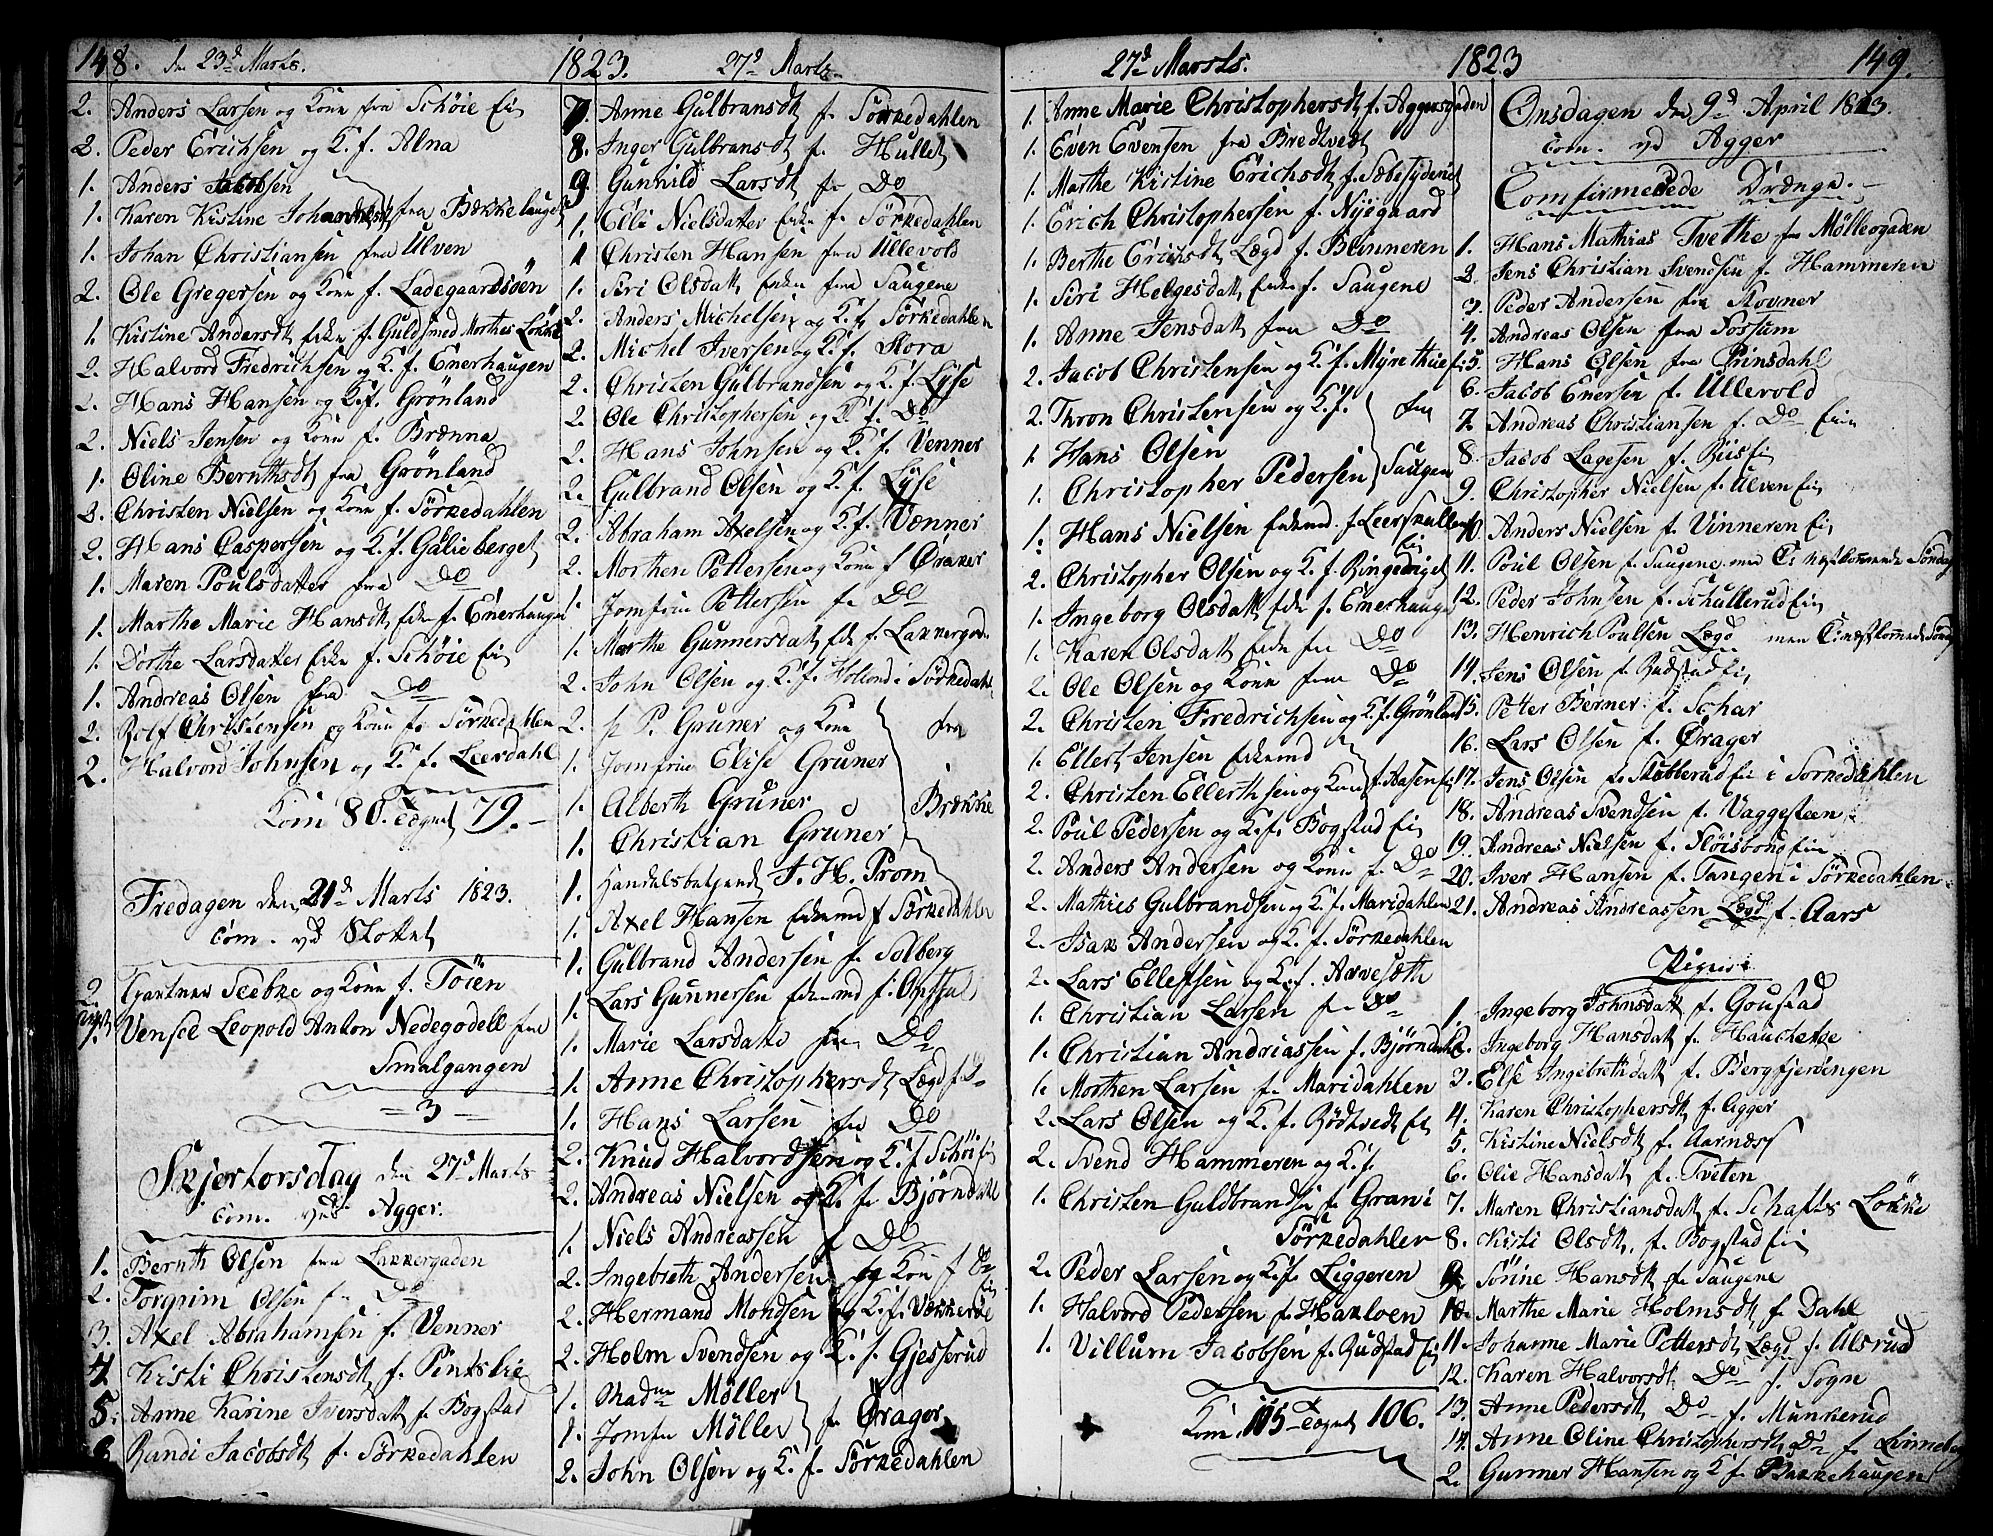 148. den 23d Marts. 1823. 27d Marts
2. Anders Larsen og Kone fra Schöie Ei
2. Peder Erichsen og K. f. Alna
1. Anders Jacobsen
1. Karen Kistine Johannesdt fra Bækkelauget
1. Johan Christiansen fra Ulven
2. Ole Gregersen og Kone f. Ladegaardsöen
1. Kistine Andersdt Enke f. Guldsmed Morthes Lökke
2. Halvord Fredrichsen og K. f. Enerhaugen
2. Hans Hansen og K. f. Grönland
2. Niels Jensen og Kone f. Brænna
1. Oline Bernthsdt fra Grönland
2. Christen Nielsen og Kone f. Sörkedahlen
2. Hans Caspersen og K. f. Galieberget
1. Maren Poulsdatter fra Do
1. Marthe Marie Hansdt Enke f. Enerhaugen
1. Dorthe Larsdatter Enke f. Schöie Ei
1. Andreas Olsen fra Do
2. Rolf Christensen og Kone fr Sörkedahlen
2. Halvord Johnsen og K. f. Leerdahl
Kom 80. Tegnet 79.
Fredagen den 21d Marts 1823.
Com. vd Slottet
2. Gartner Seebke og Kone f. Töien
1. Vensel Leopold Anton Nedegodell fra
Smalgangen
= 3 =
Skjertorsdag den 27d Marts
com. ved Agger.
1. Bernth Olsen fra Lakkergaden
2. Torgrim Olsen fr Do
3. Axel Abrahamsen f. Venner
4. Kisti Christensdt f. Pintslie
5. Anne Karine Iversdatt f. Bogstad
6. Randi Jacobsdt f. Sörkedahlen
7. Anne Gulbransdt f. Sörkedahlen
8. Inger Gulbransdt f. Hullet
9. Gunnild Larsdt f. Do
1. Elli Nielsdatter Enke f. Sörkedahlen
1. Christen Hansen fra Ullevold
1. Siri Olsdatt Enke fra Saugene
2. Anders Michelsen og K. f. Sörkedahlen
2. Michel Iversen og K. f. Skora
2. Christen Gulbrandsen og K. f. Lyse
2. Ole Christophersen og K. f. Do
2. Hans Johnsen og K. f. Venner
2. Gulbrand Olsen og K. f. Lyse
2. Abraham Axelsen og K. f. Vænner
2. Morthen Pettersen og Kone f Oraker
1. Jomfrue Pettersen fr Do
1. Marthe Gunnersdatt Enke f. Lakkergad.
2. John Olsen og K. f. Holtend i Sörkedahl
2. hr P. Gruner og Kone fra
1. Jomfrue Elise Gruner
1. Alberth Gruner Brække
1. Christian Gruner
1. Handelsbetjent J. H. Prom
1. Axel Hansen Enkemd f Sörkedahlen
1. Gulbrand Andersen f. Solberg
1. Lars Gunnersen Enkemd f. Opsal
1. Marie Larsdatt fra Do
1. Anne Christophersdt Lægd f. Do
1. Hans Larsen fra Do
2. Knud Halvordsen og K. f Schöi Ei
2. Andreas Nielsen og K. f. Björndahl
1. Niels Andreassen f Do
2. Ingebreth Andersen og Kone f Do Ei
2. Hermand Mondsen og K. f. Vækkeröe
2. Holm Svendsen og K. f. Gjesserud
1. Madme Möller
1. Jomfru Möller f. Orager
2. John Olsen og K. f. Sörkedahlen
27d Marsts. 1823 149.
1. Anne Marie Christophersdt f. Aggersgaden
1. Even Evensen fra Bredtvedt
1. Marthe Kistine Erichsdt f. Sæbesyderiet
1. Erich Christophersen f. Nyegaard
1. Berthe Erichsdt Lægd f. Blinneren
1. Siri Helgesdatt Enke f. Saugene
1. Anne Jensdatt fra Do
2. Jacob Christensen og K. f. Myrethue Ei
2. Thron Christensen og K. f. fra
1. Hans Olsen
1. Christopher Pedersen Saugen
1. Hans Nielsen Enkemd. f Leerskallen Ei
2. Christopher Olsen og K. f Ringeriget
1. Ingeborg Olsdatt Enke f. Enerhaugen
1. Karen Olsdatt Enke fra Do
2. Ole Olsen og Kone fra Do
2. Christen Fredrichsen og K. f. Grönland
1. Ellert Jensen Enkemd
2. Christen Ellerthsen og Kone f. Aasen Ei
2. Poul Pedersen og K. f. Bogstad Ei
2. Anders Andersen og Kone f. Do
2. Mathies Gulbrandsen og K. f. Maridahlen
2. Isak Andersen og K. f. Sörkedahlen
2. Lars Ellefsen og K. f. Arvesæth
1. Christian Larsen fra Do
1. Christian Andriassen f. Björndahl
1. Morthen Larsen f. Maridahlen
2. Lars Olsen og K. f. Rödtvedt Ei
2. Svend Hammeren og K. f.
1. Christen Guldbrandsen f. Gran i
Sörkedahlen
2. Peder Larsen og K. f. Liggeren
1. Halvord Pedersen f. Hakloen
1. Villum Jacobsen f. Rudstad Ei
Kom 105 Tegnet 106.
Onsdagen den 9d April 1823.
com. vd Agger
Comfirmerede Drænge.
1. Hans Mathias Tvethe fra Möllergaden
2. Jens Christian Svendsen f. Hammeren
3. Peder Andersen fra Stovner
4. Andreas Olsen fra Fossum
5. Hans Olsen fra Prinsdahl
6. Jacob Enersen f. Ullevold
7. Andreas Christiansen f. Do Eie
8. Jacob Lagesen f. Riis Ei
9. Christopher Nielsen f. Ulven Ei
10. Anders Nielsen f. Vinneren Ei
11. Poul Olsen f. Saugene men C. næstkommende Söndag
12. Peder Johnsen f. Schullerud Ei
13. Henrich Poulsen Lægd men C. næstkommende Sönd
14. Jens Olsen f. Rudstad Ei
15. Petter Berner f. Schar
16. Lars Olsen f. Orager
17. Jens Olsen f. Stubberud Ei i Sorkedahlen
18. Andreas Svendsen f. Vaggesteen
19. Andreas Nielsen f. Flöisbond Eie
20. Iver Hansen f. Tangen i Sörkedahlen
21. Andreas Andreassen Lægd f. Aars
Pigerne
1. Ingeborg Johnsdatt f. Goustad
2. Ingeborg Hansdatt f. Hauchetoe
3. Else Ingebrethsdatt f. Bergfjerdingen
4. Karen Christophersdt f. Agger
5. Kistine Nielsdt f. Aarnæs
6. Olie Hansdatt f. Tveten
7. Maren Christiansdatt f. Schafts Lökke
8. Kisti Olsdt. f. Bogstad Ei
9. Sörine Hansdt f. Saugene
10. Marthe Marie Holmsdt f. Dahl
11. Johanne Marie Pettersdt Lægd f. Ulsrud
12. Karen Halvorsdt Do f. Sogn
13. Anne Pedersdt Do f. Munkerud
14. Anne Oline Christophersdt Do f. Linneberg
2. Gunner Hansen og K f. Bakkehaugen